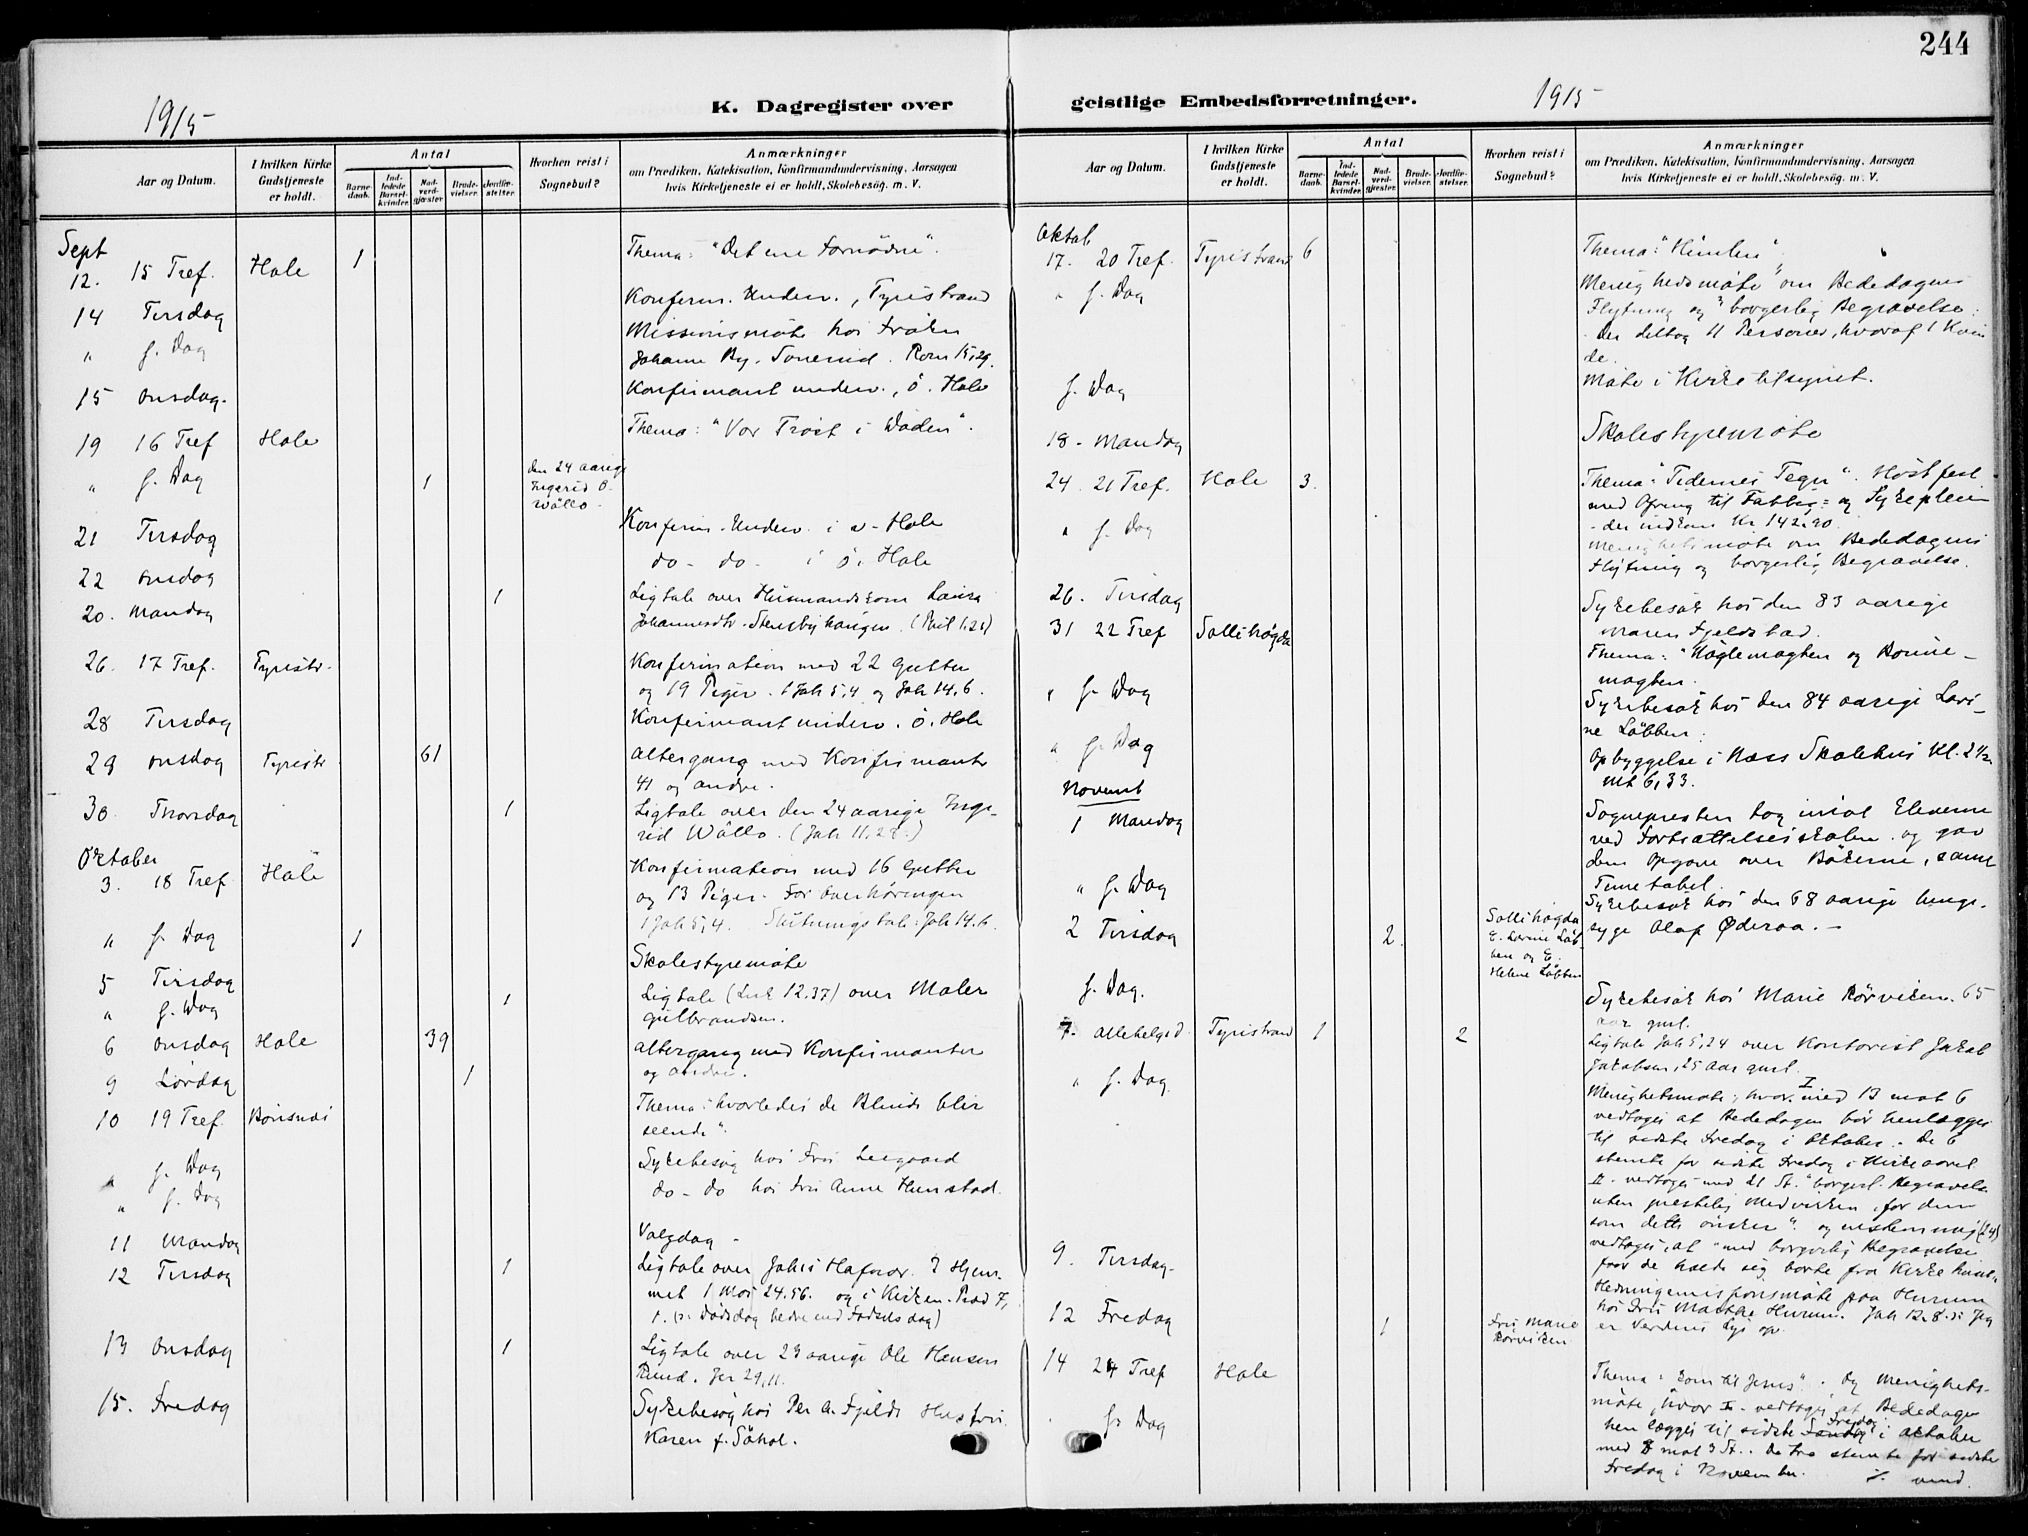 244
1915
K. Dagregister over
geistlige Embedsforretninger.
1915
Aar og Datum.
I hvilken Kirke Gudstjeneste er holdt.
Antal
Barnedaab.
Indledede Barselkvinder.
Nadverdgjæster.
Brudevielser.
Jordfæstelser.
Hvorhen reist i Sognebud?
Anmærkninger
om Prædiken, Katekisation, Konfirmandundervisning, Aarsagen
hvis Kirketjeneste ei er holdt, Skolebesøg, m. V.
Sept
12. 15 Tref. Hole 1 Thema: "Det ene Fornödne".
14 Tirsdag Konferm. Underv., Tyristrand
" s. Dag Missionsmöte hos Fröken
Johanne By. Rom 15,29.
15 Onsdag. Konfirmant underv., ö. Hole
19 16 Tref Hole Thema: "Vor Tröst i Döden".
" s. Dag 1 den 24 aarige
Ingerid O.
Wöllo.
21 Tirsdag Konferm. Underv. i v. Hole
22 Onsdag do - do - i ö. Hole
20. Mandag 1 Ligtale over Husmandskone Laura
Johannesdtr. (Phil 1.21)
26. 17 Tref. Tyristr. Konfirmation med 22 Gutter
og 19 Piger. 1 Joh 5,4 og Joh 14.6.
28 Tirsdag Konfirmant underv. ö. Hole
29 Onsdag Tyristr 61 Altergang med Konfirmanter
41 og andre.
30 Thorsdag 1 Ligtale over den 24 aarige Inge-
rid Wöllo. (Joh 11,28.)
Oktober
3. 18 Tref. Hole Konfirmation med 16 Gutter
og 13 Piger. For Overhöringen
1 Joh 5,4. Slutningstale: Joh 14.6.
" s. Dag 1
5 Tirsdag Skolestyremöte
" s. Dag 1 Ligtale (Luk 12.37) over Maler
Gulbrandsen.
6 Onsdag Hole 39 Altergang med Konfirmanter
og andre.
9 Lördag 1
10 19 Tref. Bönsnæs Thema: "hvorledes de Blinde blir
seende".
" s. Dag Sykebesög hos Fru
" s. Dag do - do hos Fru Anne Hunstad.
11 Mandag Valgdag -
12 Tirsdag 1 Ligtale over I Hjem-
met 1 Mos 24.56. og i Kirken. Præd 7,
1. (Dödsdag bedre end Födselsdag)
13 Onsdag 1 Ligtale over 23 aarige Ole Hansen
Rund. Jer 29,11.
15. Fredag Sykebesög hos Per A. Fjelds Husfru
Karen f. Søhol.
Aar og Datum.
I hvilken Kirke Gudstjeneste er holdt.
Antal
Barnedaab.
Indledede Barselkvinder.
Nadverdgjæster.
Brudevielser.
Jordfæstelser.
Hvorhen reist i Sognebud?
Anmærkninger
om Prædiken, Katekisation, Konfirmandundervisning, Aarsagen
hvis Kirketjeneste ei er holdt, Skolebesøg, m. V.
Oktob
17. 20 Tref. Tyristrand 6 Thema: "Himlen".
" s. Dag Menighedsmöte om Bededagens
Flytning og "borgerlig Begravelse.
Der deltog 11 Personer, hvoraf 1 Kvin
de.
s. Dag Möte i Kirketilsynet.
18. Mandag Skolestyremöte
24. 21 Tref. Hole 3. Thema "Tidernes Tegn". Höstfest
med Ofring til Fattig= og Sykepleien
- der indkom Kr 142.90.
" s. Dag Menighetsmöte om Bededagens
Flytning og borgerlig Begravelse.
26. Tirsdag Sykebesök hos den 83 aarige
Maren Fjeldstad.
31 22 Tref Sollihögda Thema: og Bönne-
magten.
" s. Dag Sykebesök hos den 84 aarige Lovi-
ne Löbben.
" s. Dag Opbyggelse i Næss Skolehus Kl. 2 1/2
Mt 6,33.
Novemb
1 Mandag Sognepresten tog imot Eleverne
ved Fortsættelsesskolen og gav
dem Opgave over Bökerne, samt
Timetabel.
" s. Dag Sykebesök hos den 68 aarige lunge-
syge Olaf Øderaa. -
2 Tirsdag 2. Sollihögda
E. Lovine Löb-
ben og E.
Helene Löbben
s. Dag. Sykebesök hos Marie Rörviken. 65
aar gml.
7. Allehelgsd. Tyristrand 1 2 Ligtale Joh 5,24 over Kontorist Jakob
Jakobsen, 25 Aar gml.
" s. Dag Menighetsmöte, hvor I med 13 mot 6
vedtoges at Bededagen bör henlægges
til sidste Fredag i Oktober. De 6
stemte for sidste Fredag i Kirkeaaret.
II. vedtoges med 21 St. "borgerl. Begravelse
uten prestelig Medvirken, for dem
som dette önsker". og
vedtoges, at "med borgerlig Begravelse
faar de holde sig borte fra Kirke
9. Tirsdag Hedningemissionsmöte paa Hurum
hos Fru Marthe Hurum. Joh 12.8. Jeg
er Verdens Lys og.
12 Fredag 1 Fru Marie
Rörviken
14 24 Tref Hole Thema: "Kom til Jesus". Og Menighets-
" s. Dag möte, hvor I - vedtoges at Bededagen
henlægges til sidste Fredag i Oktober
med 8 mot 3 St.. De tre stemte for sidste
Fredag i November. ./. vend